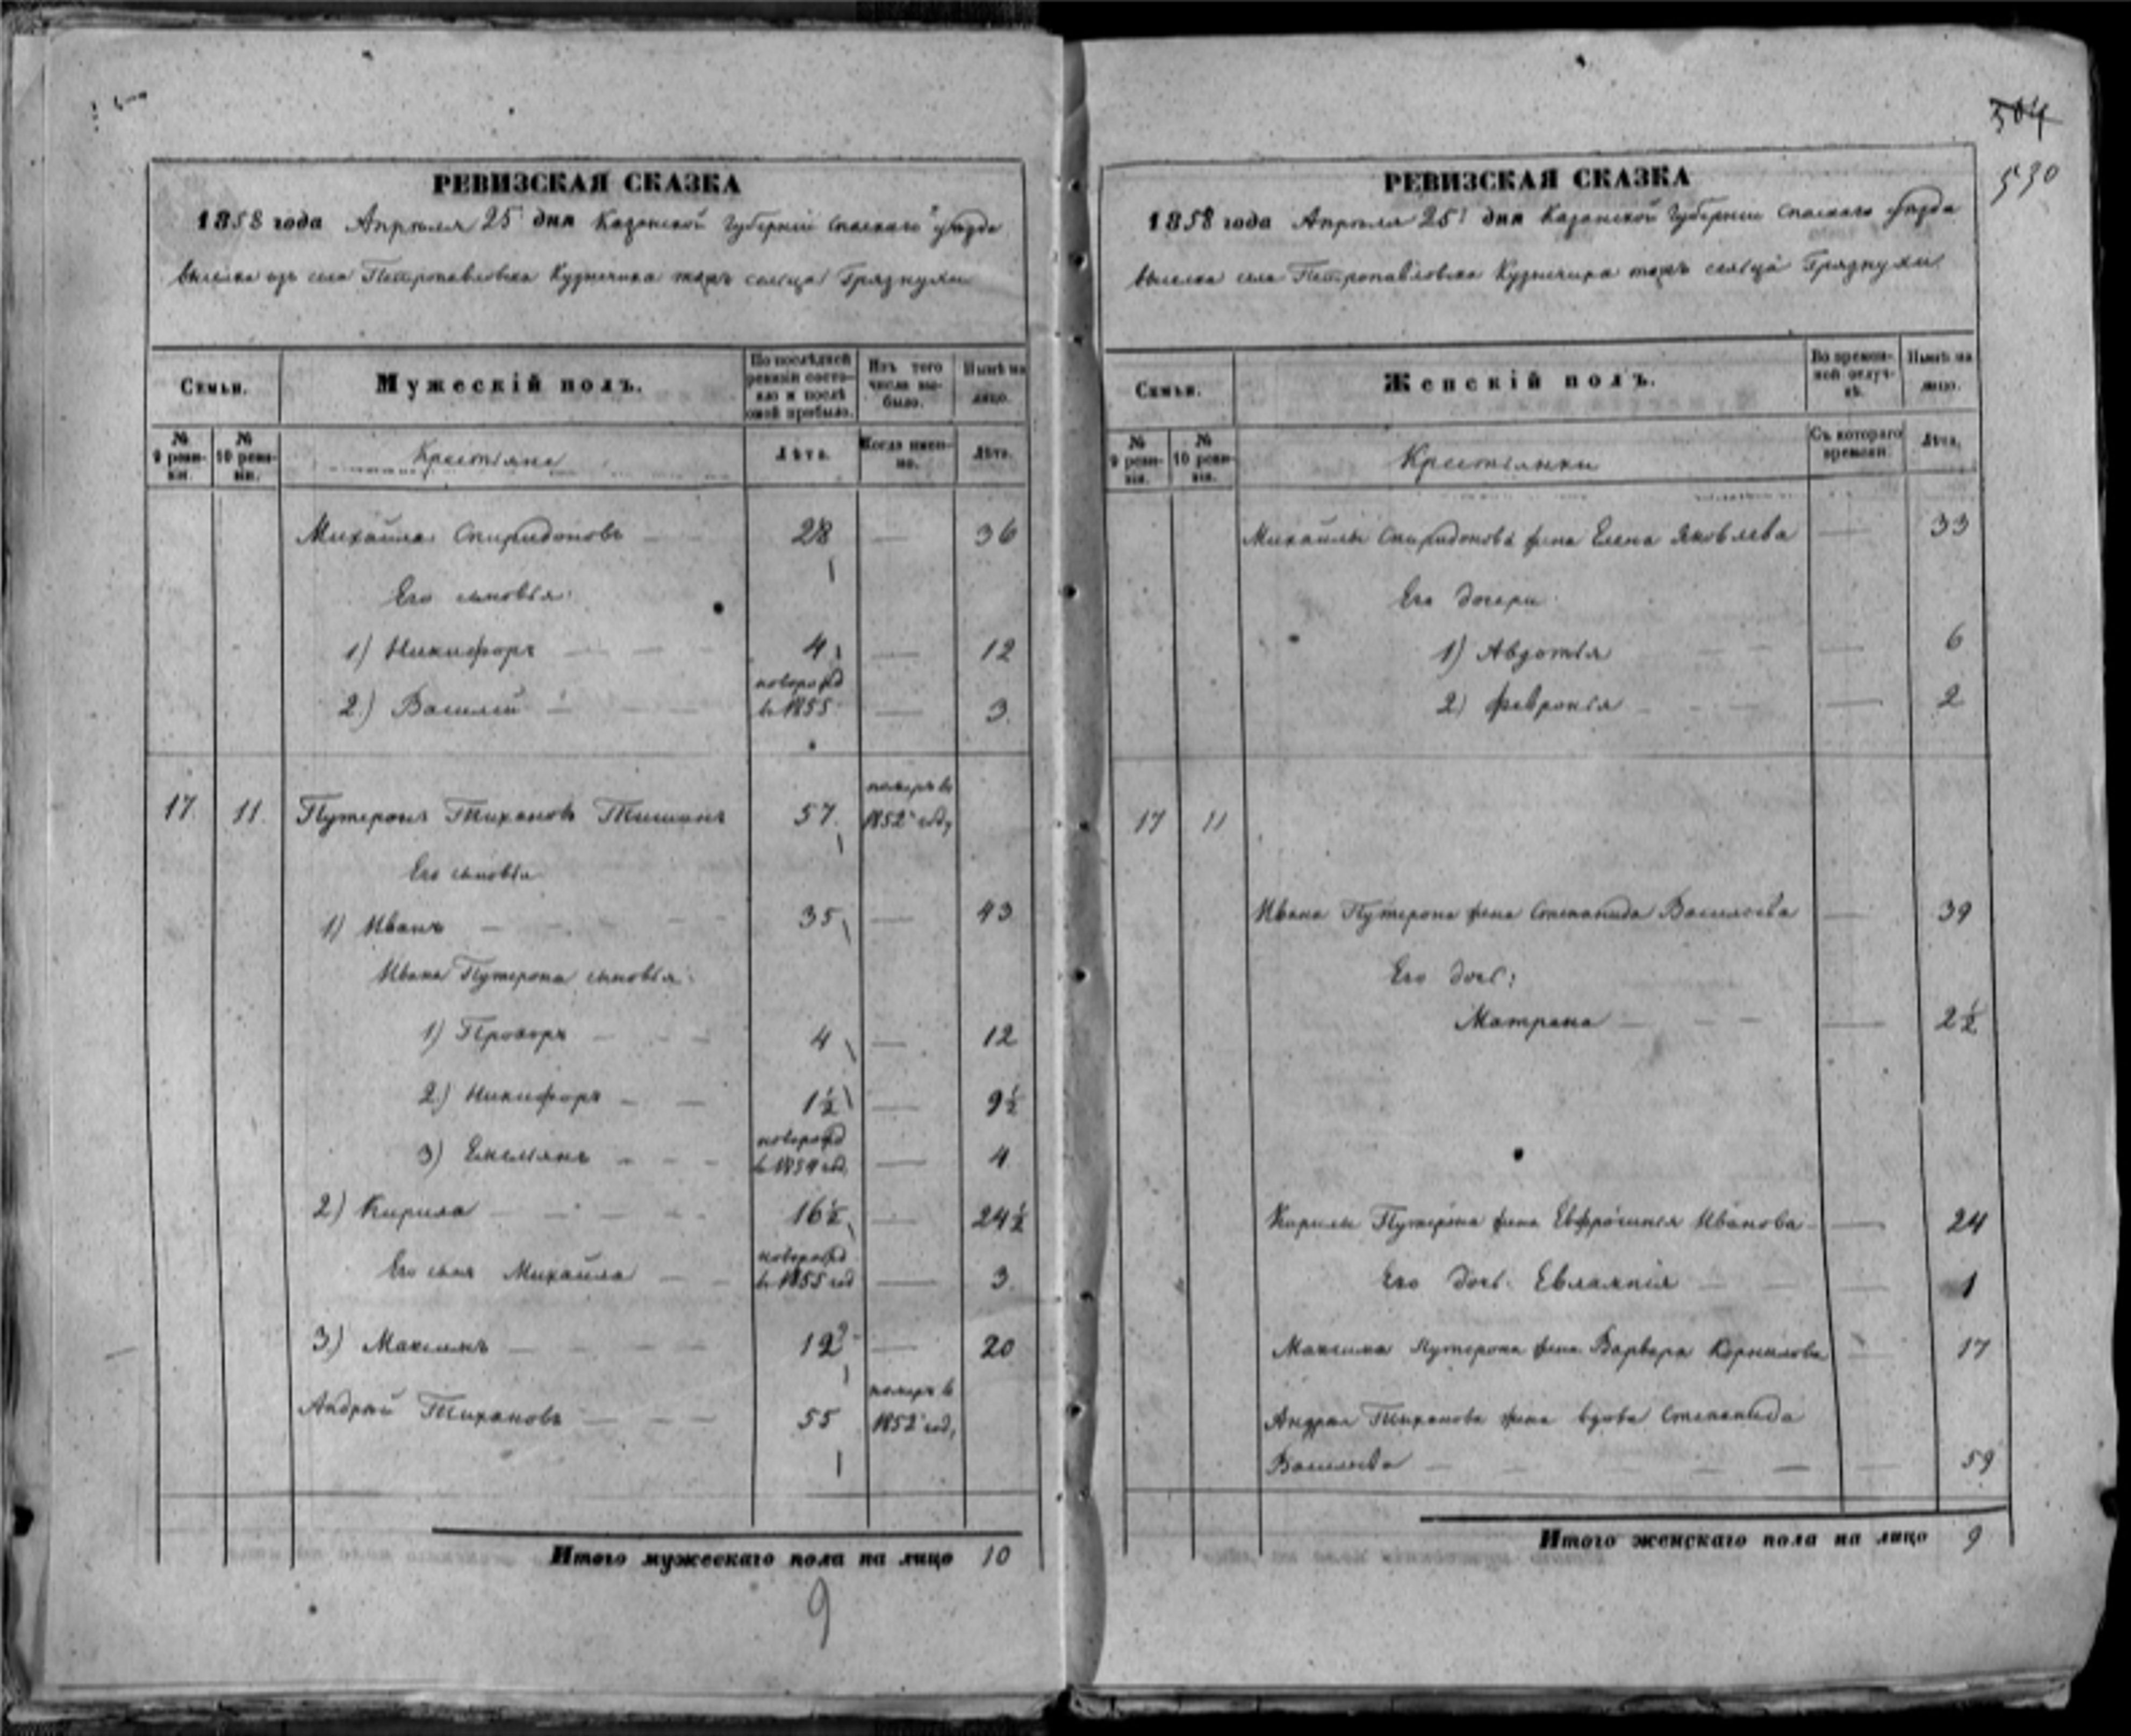 504
530
РЕВИЗСКАЯ СКАЗКА
1858 года Апреля 25 дня Казанской Губерніи Спаскаго уезда
выселка изъ села Петропавловска Кузнечиха тожъ сельца Грязнухи
Семьи.
Мужескій полъ.
По последней ревизіи состояло и после оной прибыло.
Изъ того числа выбыло.
Ныне на лицо.
№ 9 ревизіи.
№ 10 ревизіи.
Крестьяне
Лѣта.
Когда именно.
Лѣта.
Михайла Спиридоновъ 28 — 36
Его сыновья:
1) Никифоръ 4 — 12
2.) Василій новорожд в 1855 — 3.
17. 11. Путеронъ Тихановъ 57. померъ в 1852 году
Его сыновья
1) Иванъ — 35 — 43
Ивана Путерона сыновья:
1) Прохоръ 4 — 12
2.) Никифоръ — 1½ — 9½
3) Емельянъ новорожд в 1854 год — 4
2) Кирила — 16½ — 24½
Его сынъ Михайла новорожд в 1855 год — 3.
3) Максимъ — 12 — 20
Андрей Тихановъ — 55 померъ в 1852 году
Итого мужескаго пола на лицо 10
9
РЕВИЗСКАЯ СКАЗКА
1858 года Апреля 25 дня Казанской Губерніи Спаскаго уезда
выселка села Петропавловска Кузнечиха тожъ сельца Грязнухи
Семьи.
Женскій полъ.
Во временной отлучкѣ.
Нынѣ на лицо.
№ 9 ревизіи.
№ 10 ревизіи.
Крестьянки
Съ котораго времени.
Лѣта.
Михайлы Спиридонова жена Елена Яковлева — 33
Его дочери:
1) Авдотья — 6
2) Февронья — 2
17 11
Ивана Путерона жена Степанида Васильева — 39
Его дочь:
Матрена — 2½
Кирилы Путерона жена Евфросинья Иванова — 24
Его дочь Евлампія — 1
Максима Путерона жена Варвара Корнилова — 17
Андрея Тиханова жена вдова Степанида
Васильева — 59
Итого женскаго пола на лицо 9